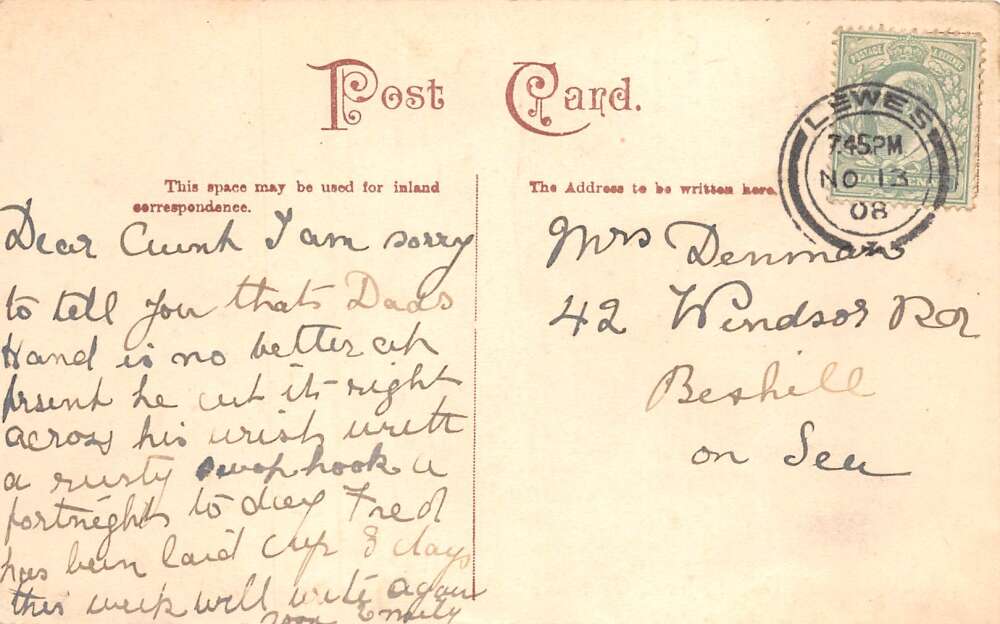 Post Card.
This space may be used for inland
correspondence.
The Address to be written here.
POSTAGE
LEWES
7.45PM
NO 13
08
Dear Aunt I am sorry
to tell you that Dads
Hand is no better at
prsent he cut it right
across his wrist with
a rusty swophook a
fortnight to day Fred
has been laid up 3 days
this week will write again
Emily
Mrs Denman
42 Windsor Rd
Bexhill
on Sea